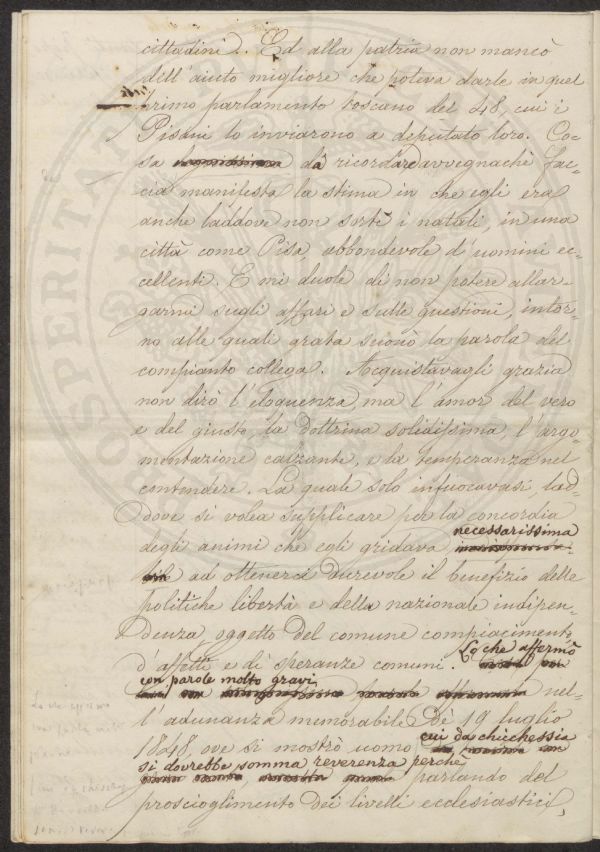 cittadini. Ed alla patria non mancò
dell'aiuto migliore che poteva darle in quel
primo parlamento toscano del 48, cui i
Pisani lo inviarono a deputato loro. Co-
sa da ricordare avvegnachè fac-
cia manifesta la stima in che egli era
anche laddove non sortì i natali, in una
città come Pisa, abbondevole d'uomini ec-
cellenti. E mi duole di non potere allar-
garmi sugli affari e sulle questioni, intor-
no alle quali grata suonò la parola del
compianto collega. Acquistavagli grazia
non dirò l'eloquenza, ma l'amor del vero
e del giusto, la dottrina solidissima, l'argo-
mentazione calzante, e la temperanza nel
contendere. La quale solo infuocavasi, lad-
dove si volea supplicare per la concordia
degli animi che egli gridava necessarissima
ad ottenersi durevole il benefizio delle
politiche libertà e della nazionale indipen-
denza, oggetto del comune compiacimento,
d'affetti e di speranze comuni. Lo che affermò
con parole molto gravi nel-
l'adunanza memorabile de' 19 luglio
1848, ove si mostrò uomo cui da chicchessia
si dovrebbe somma reverenza perchè
parlando del
proscioglimento dei livelli ecclesiastici,
PROSPERITAT